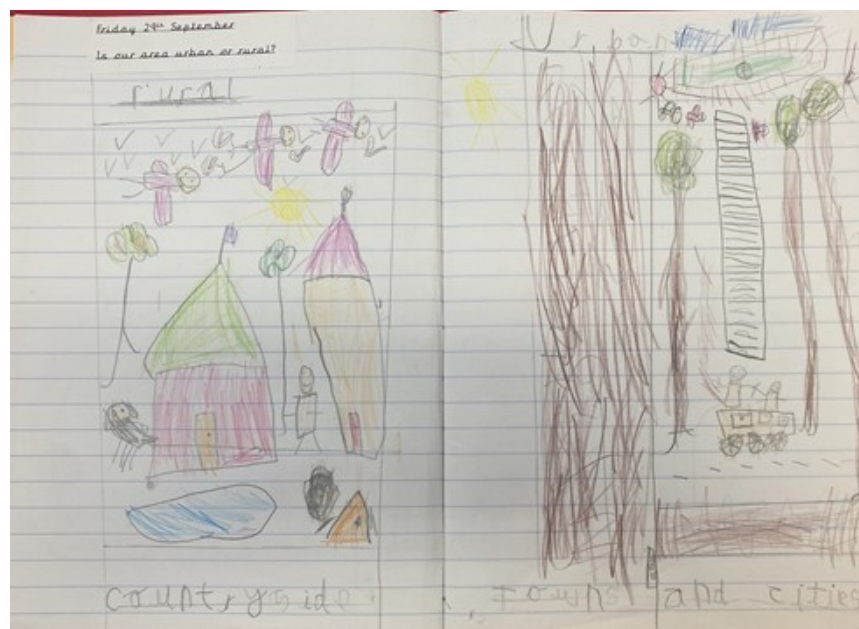 Friday 29th September
Is our area urban or rural?
rural
Urban
countryside
Towns and cities